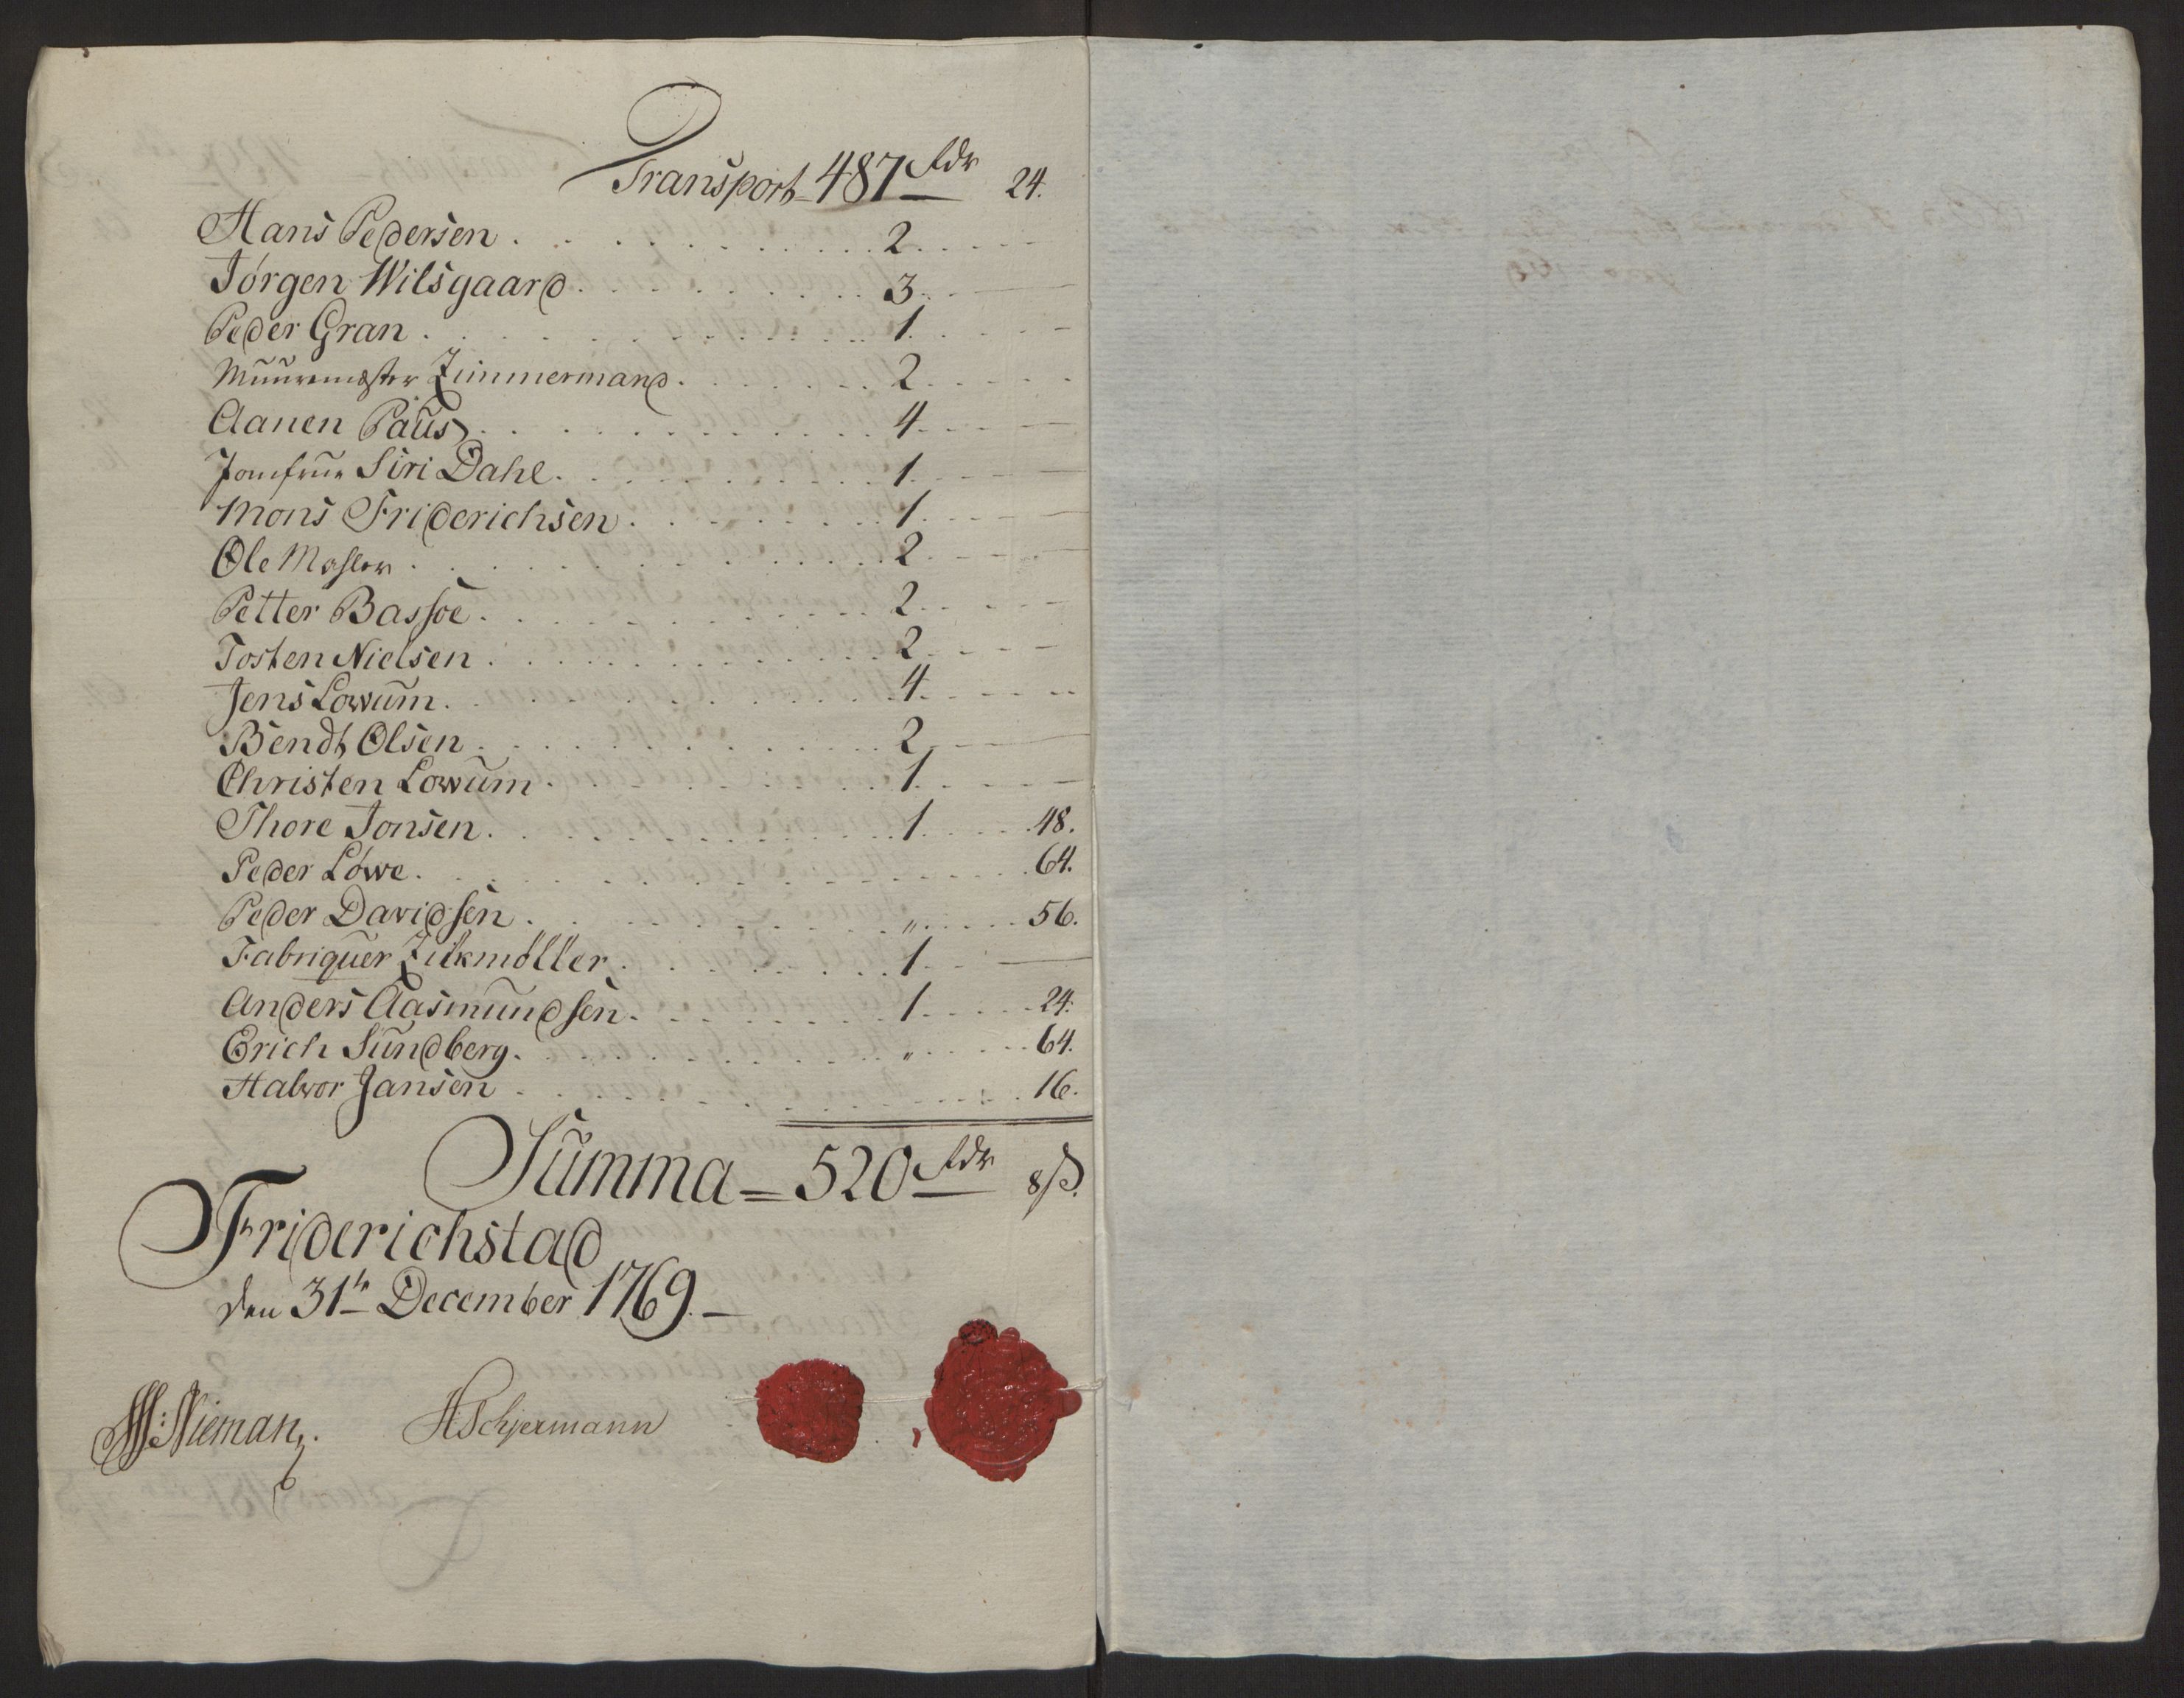 Transport 487 rdr 24.
Hans Pedersen . . . 2 . . .
Jörgen Wilsgaard . . . 3 . . .
Peder Gran . . . 1 . . .
Muuremester Zimmermand . . . 2 . . .
Aanen Paus . . . 4 . . .
Jomfrue Siri Dahl . . . 1 . . .
Mons Friderichsen . . . 1 . . .
Ole Mahler . . . 2 . . .
Petter Bassoe . . . 2 . . .
Tosten Nielsen . . . 2 . . .
Jens Lowum . . . 4 . . .
Bendt Olsen . . . 2 . . .
Christen Lowum . . . 1 . . .
Thore Jonsen . . . 1 . . . 48.
Peder Löwe . . . 64.
Peder Davidsen . . . " . . . 56.
Fabriquer Zilkmöller . . . 1 . . .
Anders Aasmundsen . . . 1 . . . 24.
Erich Sundberg . . . " . . . 64.
Halvor Jansen . . . 16.
Summa = 520 rdr 8 ß.
Friderichstad
den 31te December 1769. —
Nieman. HSchjermann